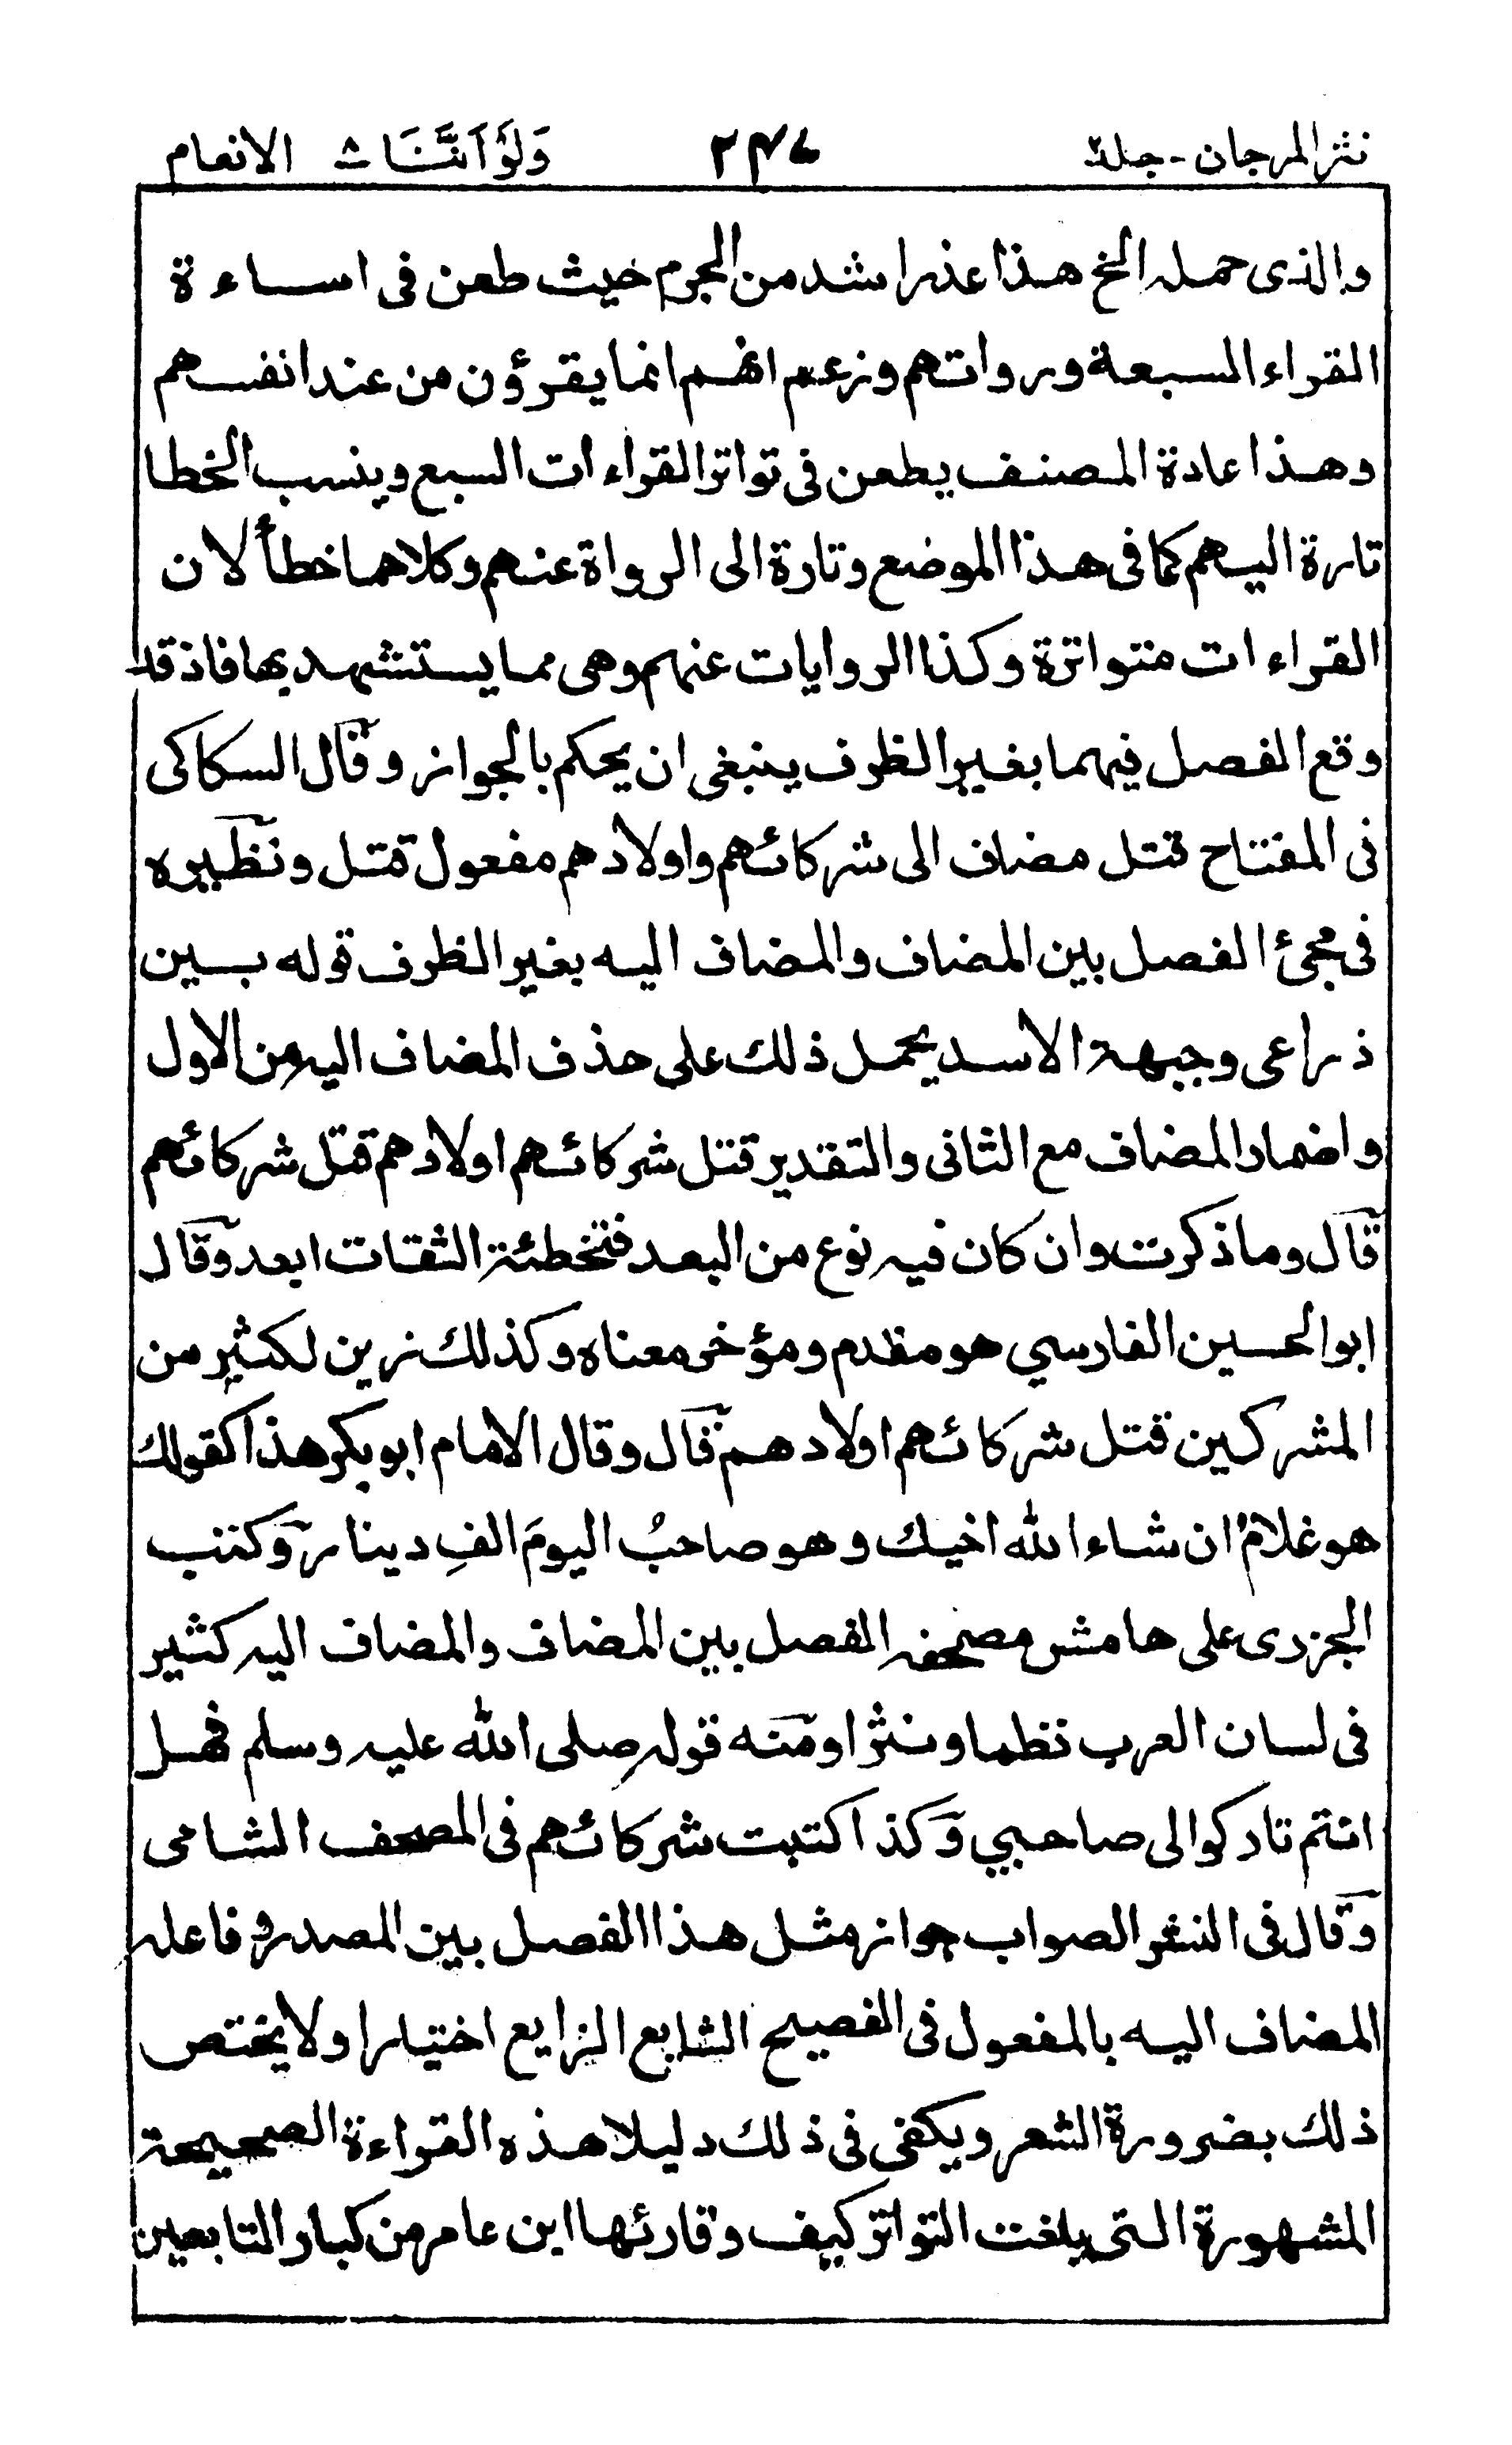 نثر المرجان - جلد ٢ ٢٤٧ وَلَوْ اَنَّنَا ٨ الانعام
والذى حمله الخ هذا عذر اشد من الجرم حيث طعن فى اساءة
القراء السبعة ورواتهم وزعم انهم انما يقرؤن من عند انفسهم
وهذا عادة المصنف يطعن فى تواتر القراءات السبع وينسب الخطا
تارة اليهم كما فى هذا الموضع وتارة الى الرواة عنهم وكلاهما خطأ لان
القراءات متواترة وكذا الروايات عنهم وهى مما يستشهد بها فاذ قد
وقع الفصل فيهما بغير الظرف ينبغى ان يحكم بالجواز وقال السكاكى
فى المفتاح قتل مضاف الى شركائهم واولادهم مفعول قتل ونظيره
فى مجئ الفصل بين المضاف والمضاف اليه بغير الظرف قوله بين
ذراعى وجبهة الاسد يحمل ذلك على حذف المضاف اليه من الاول
واضمار المضاف مع الثانى والتقدير قتل شركائهم اولادهم قتل شركائهم
قال وما ذكرت وان كان فيه نوع من البعد فتخطئة الثقات ابعد وقال
ابو الحسين الفارسي هو مقدم ومؤخر معناه وكذلك زين لكثير من
المشركين قتل شركائهم اولادهم قال وقال الامام ابو بكر هذا كقولك
هو غلامُ ان شاء الله اخيك وهو صاحبُ اليومَ الفِ دينار وكتب
الجزرى على هامش مصحفه الفصل بين المضاف والمضاف اليه كثير
فى لسان العرب نظما ونثرا ومنه قوله صلى الله عليه وسلم فهل
انتم تاركوا لى صاحبي وكذا كتبت شركائهم فى المصحف الشامى
وقال فى النشر الصواب جواز مثل هذا الفصل بين المصدر وفاعله
المضاف اليه بالمفعول فى الفصيح الشايع الزايع اختيارا ولا يختص
ذلك بضرورة الشعر ويكفى فى ذلك دليلا هذه القراءة الصحيحة
المشهورة التى بلغت التواتر كيف وقارئها ابن عامر من كبار التابعين